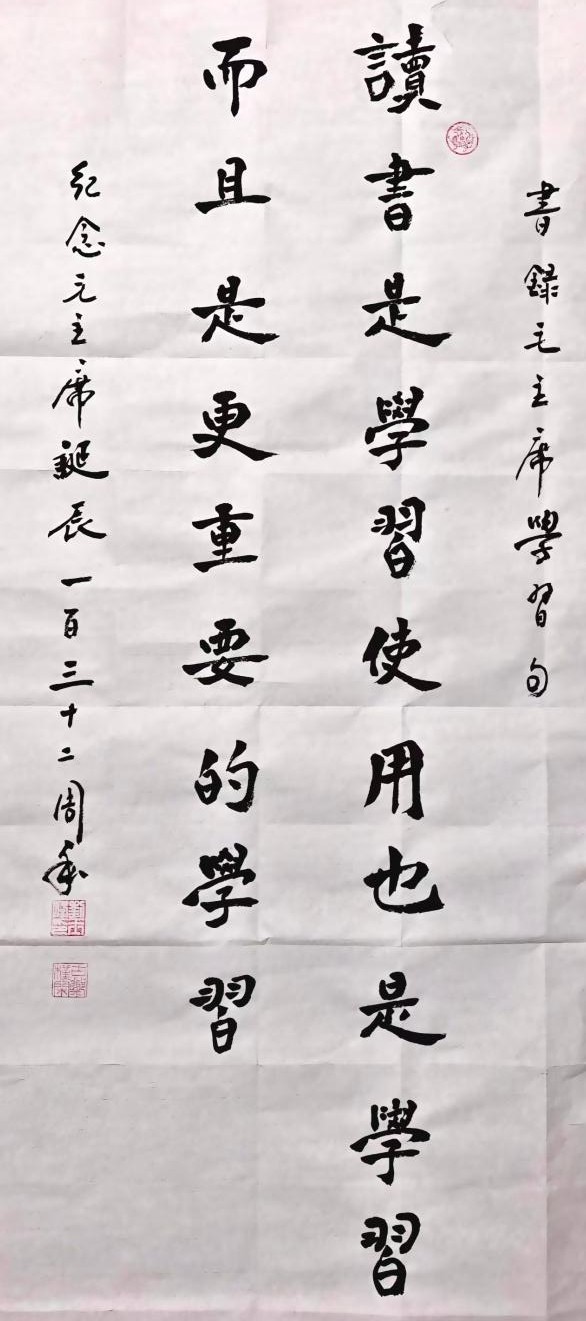 書錄毛主席學習句
讀書是學習使用也是學習
而且是更重要的學習
紀念毛主席誕辰一百三十二周年